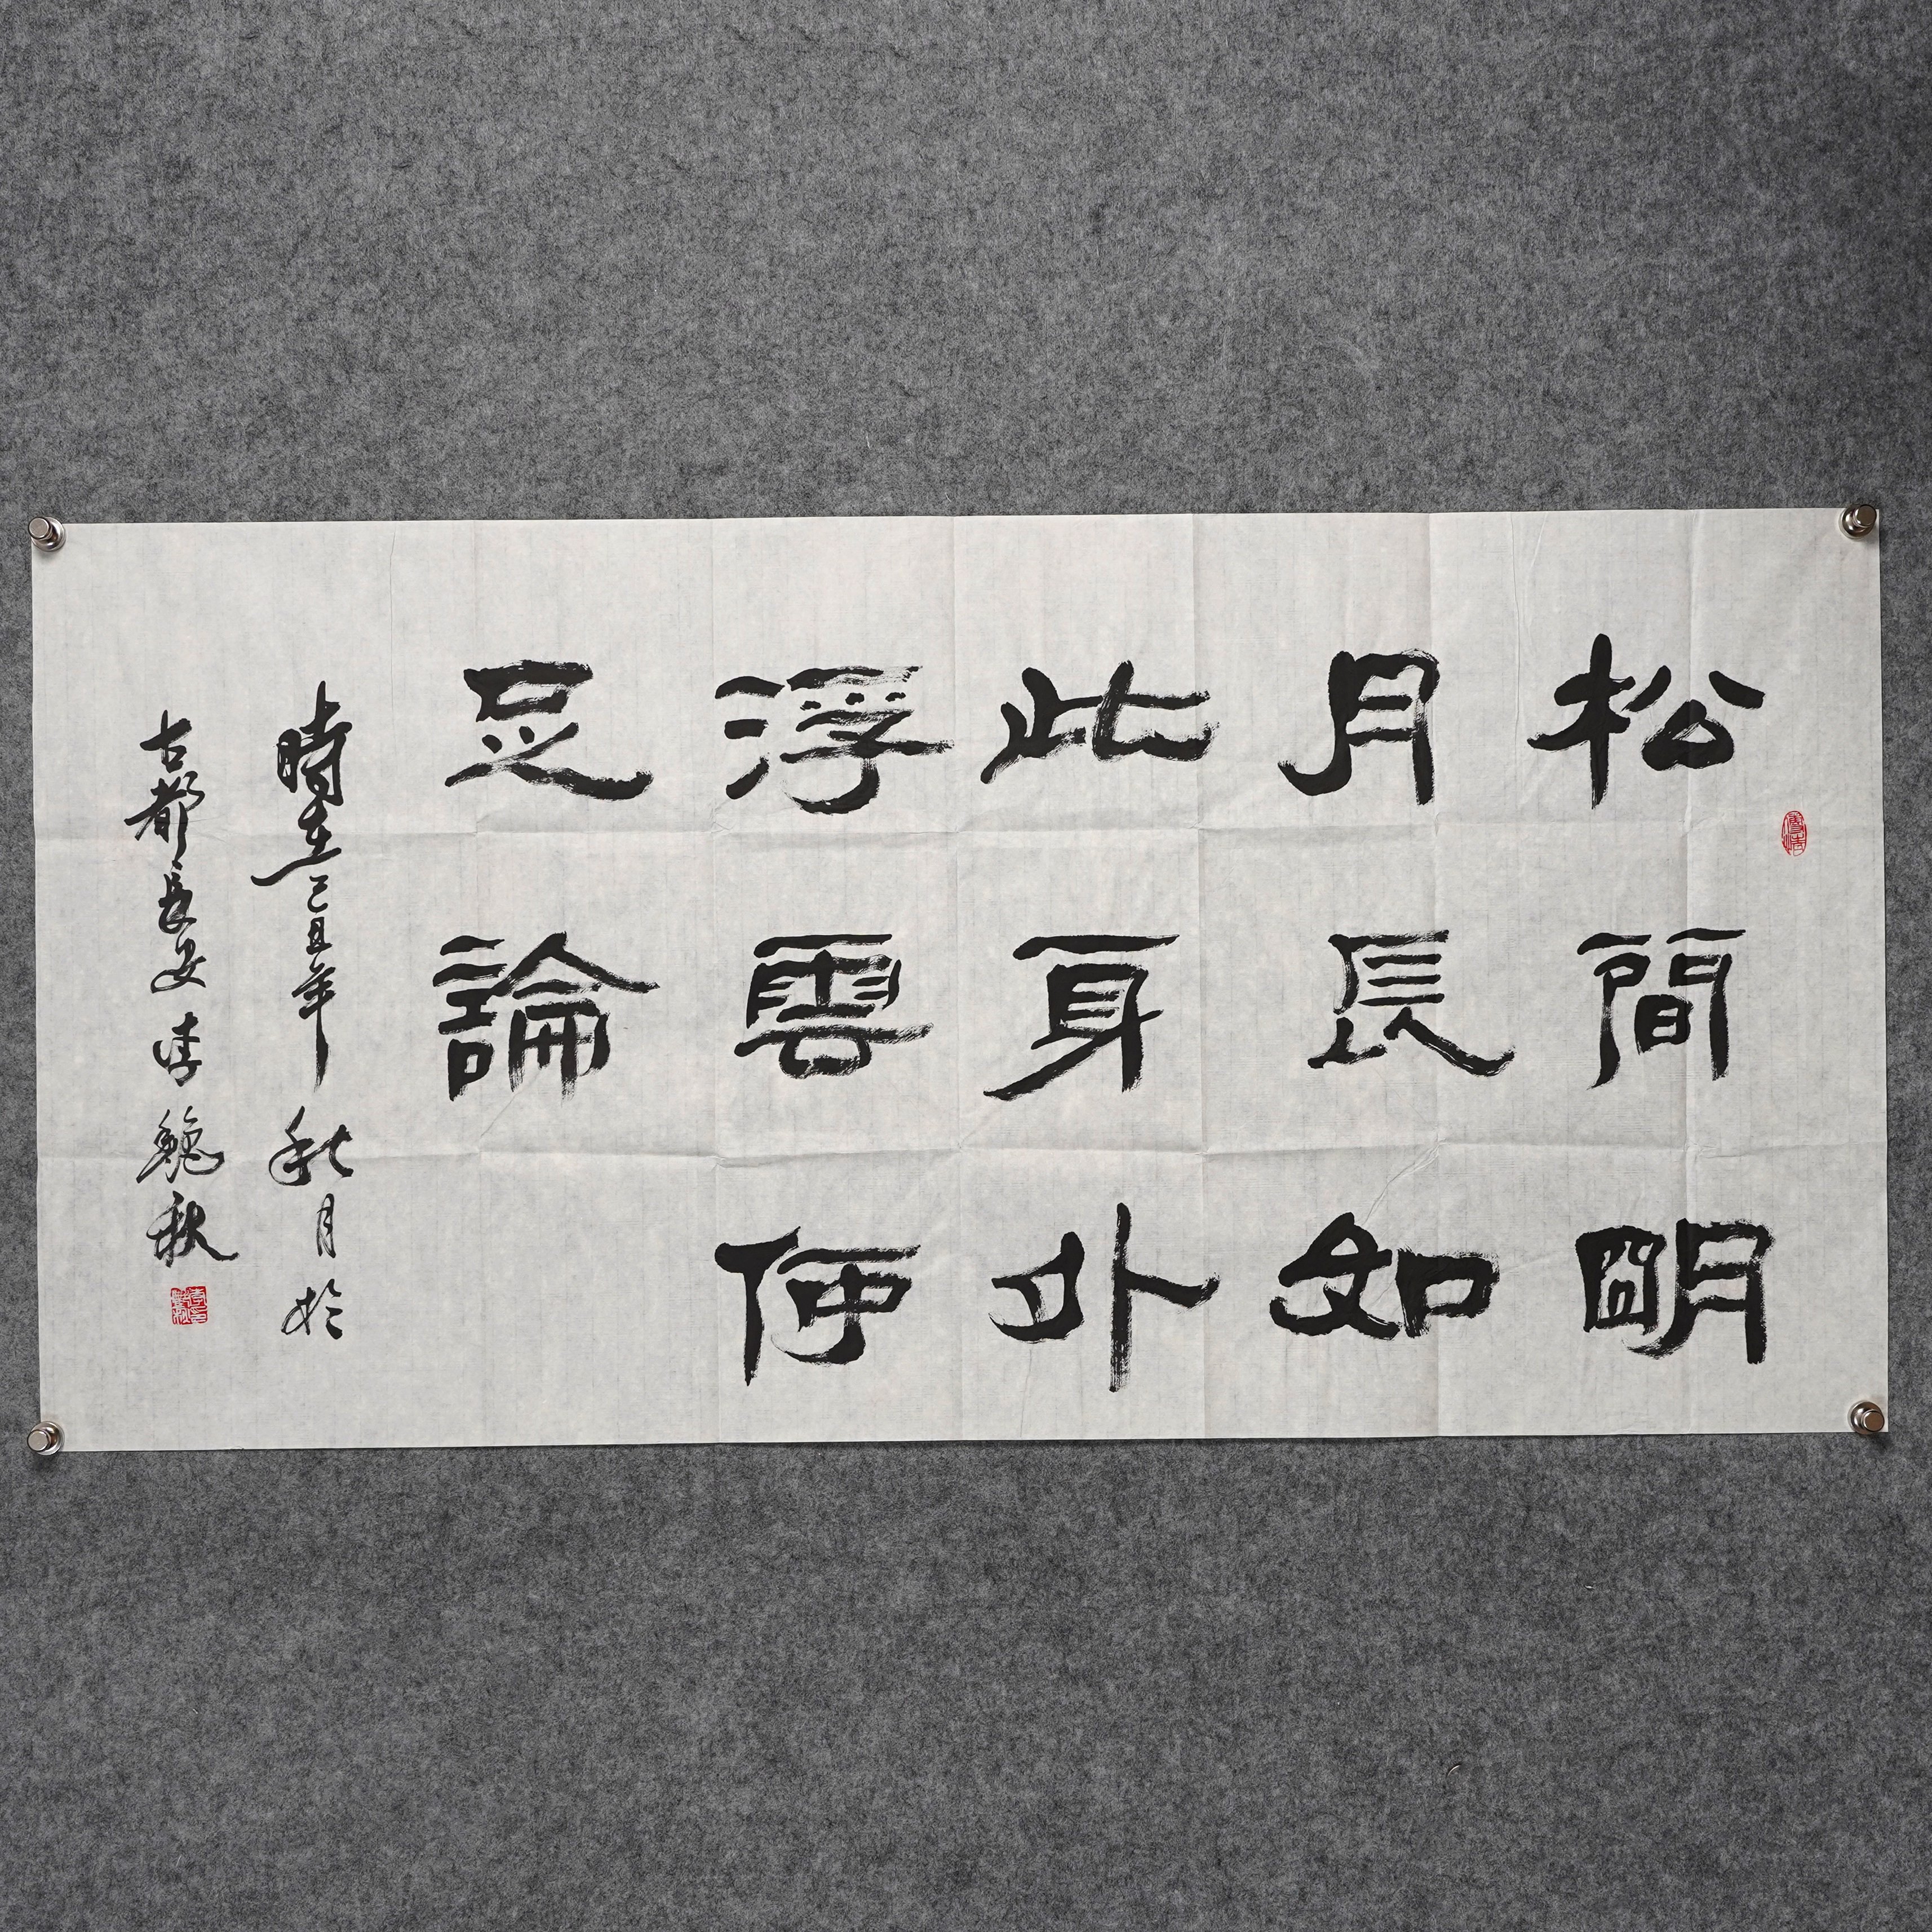 松間明
月長如
此身外
浮雲何
足論
時在己丑年秋月於
古都長安李魏秋